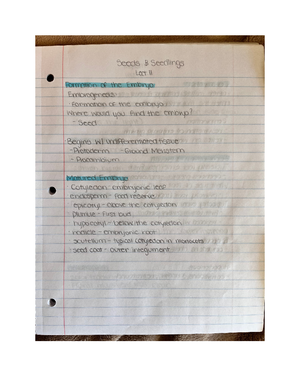 Seeds & Seedlings
Formation of the Embryo
Embryogenesis
- Formation of the embryo
Where would you find the embryo?
- Seed
Begins w/ undifferentiated tissue
- Protoderm - Ground Meristem
- Procambium
Matured Embryo
Cotyledon - embryonic leaf
endosperm - food reserve
epicotyl - above the cotyledon
plumule - first bud
hypocotyl - below the cotyledon
radicle - embryonic root
scutellum - typical cotyledon in monocots
seed coat - outer integument